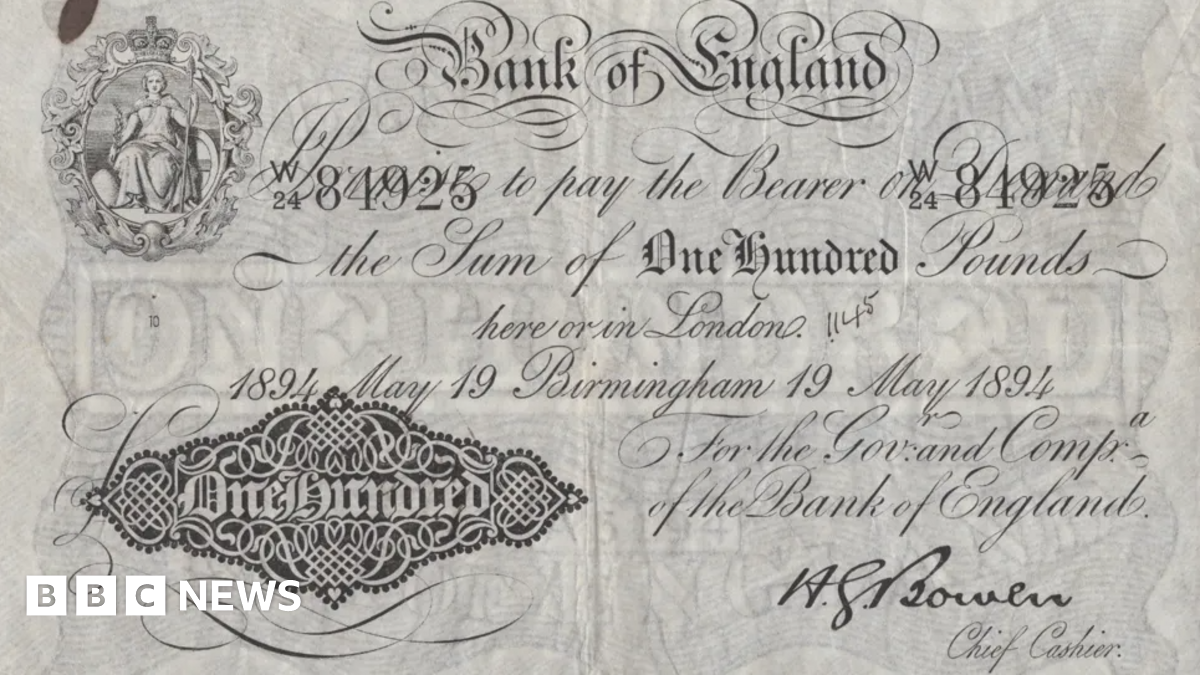 Bank of England
W
24 84925
Promise to pay the Bearer on Demand
W
24 84925
the Sum of One Hundred Pounds
here or in London. 1145
10
1894 May 19 Birmingham 19 May 1894
For the Gov:r and Comp:a
of the Bank of England.
One Hundred
ONE HUNDRED
H.G. Bowen
Chief Cashier.
BBC NEWS